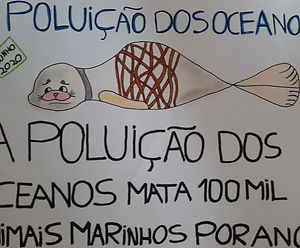 POLUIÇÃO DOS OCEANO
JUNHO
2020
A POLUIÇÃO DOS
CEANOS MATA 100 MIL
NIMAIS MARINHOS POR ANO